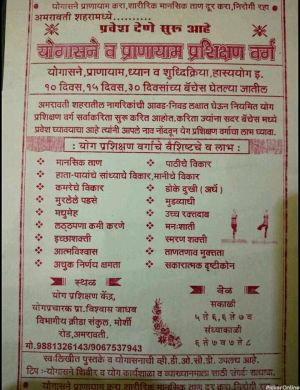 योगासने प्राणायाम करा, शारीरिक मानसिक ताण दूर करा, निरोगी रहा
अमरावती शहरामध्ये..........
प्रवेश देणे सुरू आहे
योगासने व प्राणायाम प्रशिक्षण वर्ग
योगासने, प्राणायाम, ध्यान व शुध्दिक्रिया, हास्ययोग इ.
१० दिवस, १५ दिवस, ३० दिवसांच्या बॅचेस घेतल्या जातील
अमरावती शहरातील नागरिकांची आवड-निवड लक्षात घेऊन नियमित योग
प्रशिक्षण वर्ग सर्वाकरिता सुरू करित आहोत. करिता ज्यांना सदर बॅचेस मध्ये
प्रवेश घ्यावयाचा आहे त्यांनी आपले नाव नोंदवून योग प्रशिक्षण वर्गाचा लाभ घ्यावा.
: योग प्रशिक्षण वर्गाचे वैशिष्टचे व लाभ :
मानसिक ताण
पाठीचे विकार
हाता-पायांचे सांध्याचे विकार, मानीचे विकार
कमरेचे विकार
डोके दुखी (अर्ध)
मुरलेले पडसे
मुळव्याधी
मधुमेह
उच्च रक्तदाब
लठ्ठपणा कमी करणे
मनःशाती
इच्छाशक्ती
स्मरण शक्ती
आत्मविश्वास
ताणतणाव मुक्तता
अचुक निर्णय क्षमता
सकारात्मक दृष्टीकोन
स्थळ
योग प्रशिक्षण केंद्र,
योगप्रचारक प्रा. विश्वास जाधव
विभागीय क्रीडा संकुल, मोर्शी
रोड, अमरावती.
मो. 9881326143/9067537943
वेळ
सकाळी
५ ते ६, ६ ते ७
संध्याकाळी
६ ते ७ व ७ ते ८
स्व:लिखीत पुस्तके व योगासनाची व्ही.डी.ओ.सी.डी. उपलब्ध आहे.
टिप :-योगासने शिबीर व योग कार्यशाळा व व्याख्यानमाला साठी संपर्क साधावा.
PickerOnline